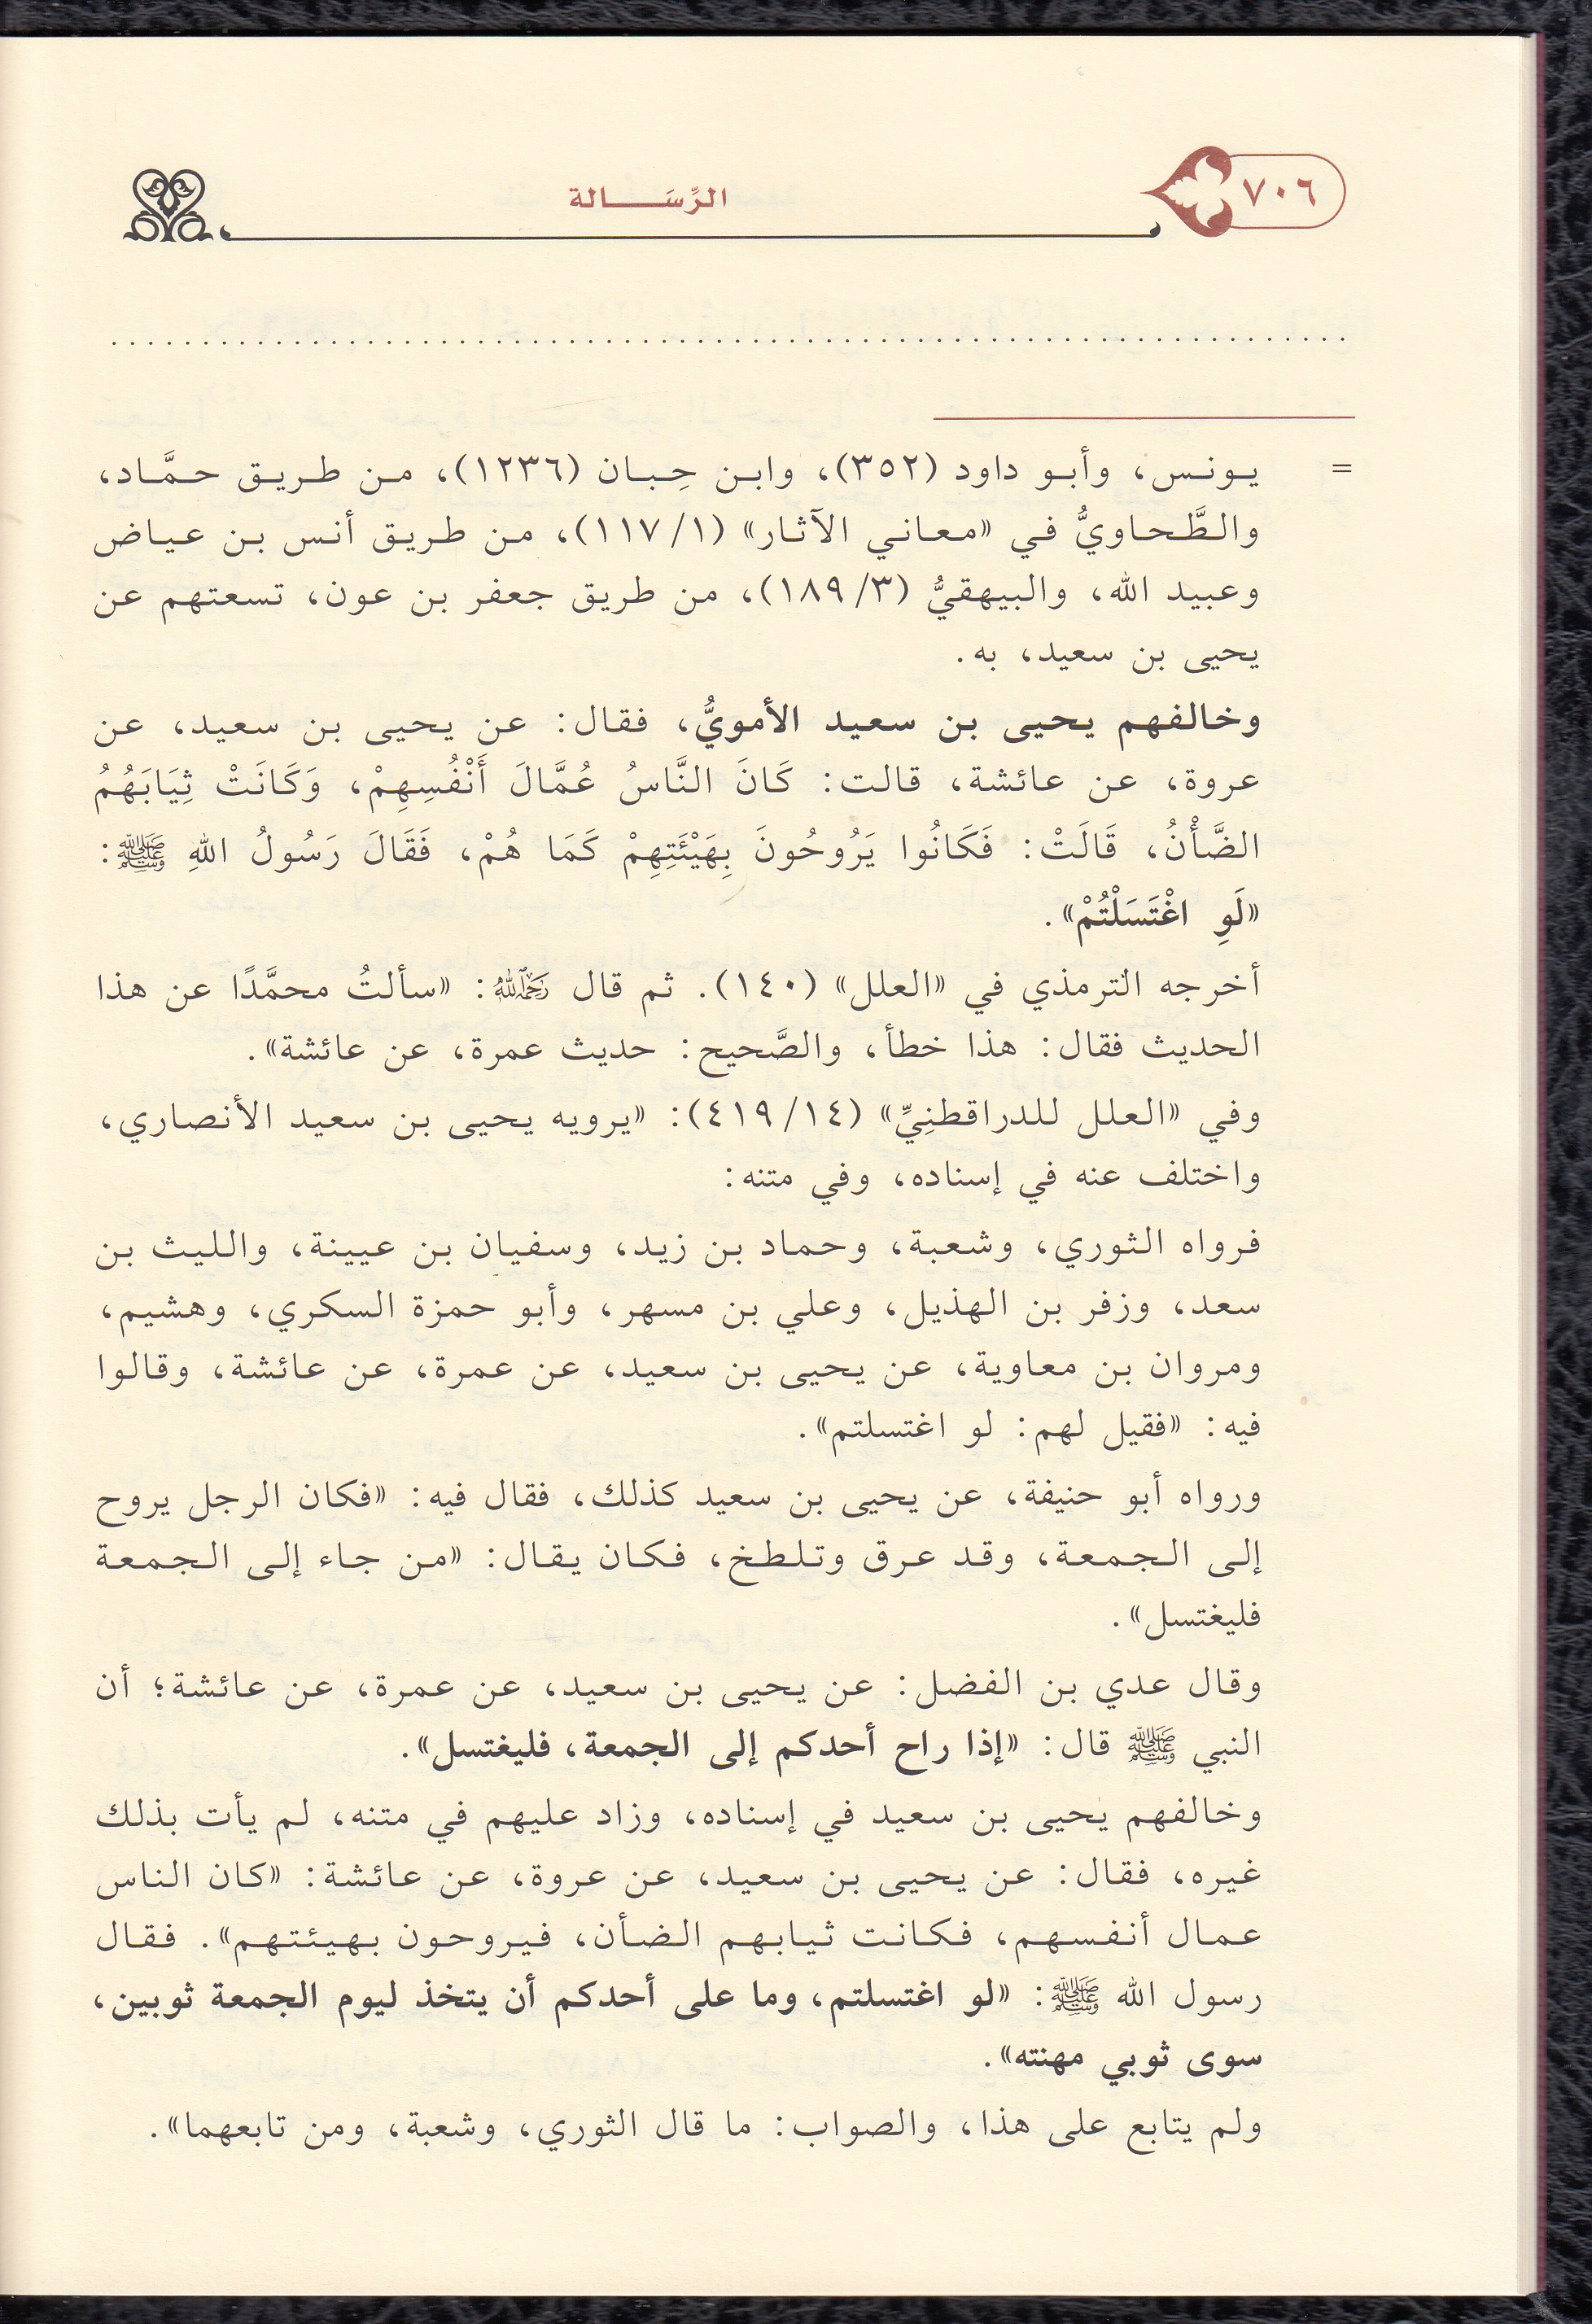 ٧٠٦
الرِّسَـــالة
. . . . . . . . . . . . . . . . . . . . . . . . . . . . . . . . . . . . . . . . . . . . . . . . . . . . . . . . . . . . . . . . . . . .
= يونس، وأبو داود (٣٥٢)، وابن حِبان (١٢٣٦)، من طريق حمَّاد،
والطَّحاويُّ في «معاني الآثار» (١/ ١١٧)، من طريق أنس بن عياض
وعبيد الله، والبيهقيُّ (٣/ ١٨٩)، من طريق جعفر بن عون، تسعتهم عن
يحيى بن سعيد، به.
وخالفهم يحيى بن سعيد الأمويُّ، فقال: عن يحيى بن سعيد، عن
عروة، عن عائشة، قالت: كَانَ النَّاسُ عُمَّالَ أَنْفُسِهِمْ، وَكَانَتْ ثِيَابَهُمُ
الضَّأْنُ، قَالَتْ: فَكَانُوا يَرُوحُونَ بِهَيْئَتِهِمْ كَمَا هُمْ، فَقَالَ رَسُولُ اللهِ ﷺ:
«لَوِ اغْتَسَلْتُمْ».
أخرجه الترمذي في «العلل» (١٤٠). ثم قال رحمه الله: «سألتُ محمَّدًا عن هذا
الحديث فقال: هذا خطأ، والصَّحيح: حديث عمرة، عن عائشة».
وفي «العلل للدراقطنِيِّ» (١٤/ ٤١٩): «يرويه يحيى بن سعيد الأنصاري،
واختلف عنه في إسناده، وفي متنه:
فرواه الثوري، وشعبة، وحماد بن زيد، وسفيان بن عيينة، والليث بن
سعد، وزفر بن الهذيل، وعلي بن مسهر، وأبو حمزة السكري، وهشيم،
ومروان بن معاوية، عن يحيى بن سعيد، عن عمرة، عن عائشة، وقالوا
فيه: «فقيل لهم: لو اغتسلتم».
ورواه أبو حنيفة، عن يحيى بن سعيد كذلك، فقال فيه: «فكان الرجل يروح
إلى الجمعة، وقد عرق وتلطخ، فكان يقال: «من جاء إلى الجمعة
فليغتسل».
وقال عدي بن الفضل: عن يحيى بن سعيد، عن عمرة، عن عائشة؛ أن
النبي ﷺ قال: «إذا راح أحدكم إلى الجمعة، فليغتسل».
وخالفهم يحيى بن سعيد في إسناده، وزاد عليهم في متنه، لم يأت بذلك
غيره، فقال: عن يحيى بن سعيد، عن عروة، عن عائشة: «كان الناس
عمال أنفسهم، فكانت ثيابهم الضأن، فيروحون بهيئتهم». فقال
رسول الله ﷺ: «لو اغتسلتم، وما على أحدكم أن يتخذ ليوم الجمعة ثوبين،
سوى ثوبي مهنته».
ولم يتابع على هذا، والصواب: ما قال الثوري، وشعبة، ومن تابعهما».